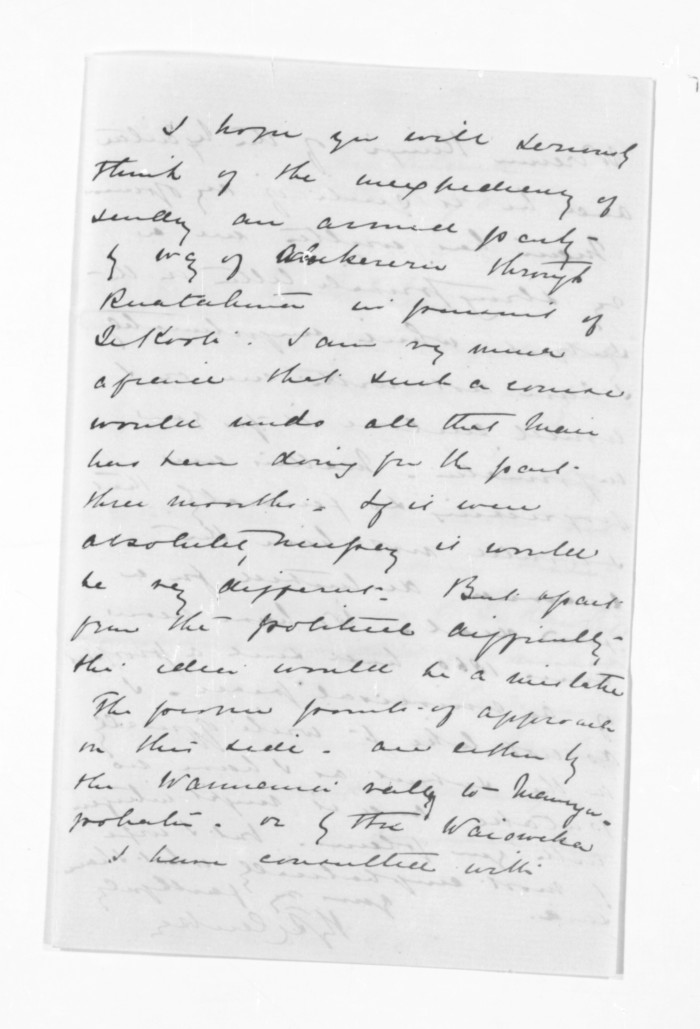 I hope you will seriously
think of the inexpediency of
sending an armed party
by way of through
Ruatahuna in pursuit of
Te Kooti. I am very much
afraid that such a course
would undo all that Mair
has been doing for the past
three months. If it were
absolutely necessary it would
be very different. But apart
from the political difficulty
the idea would be a mistake
The points of approach
on this side. are either by
the valley to Maunga-
pohatu. or by the Waioweka
I have consulted with